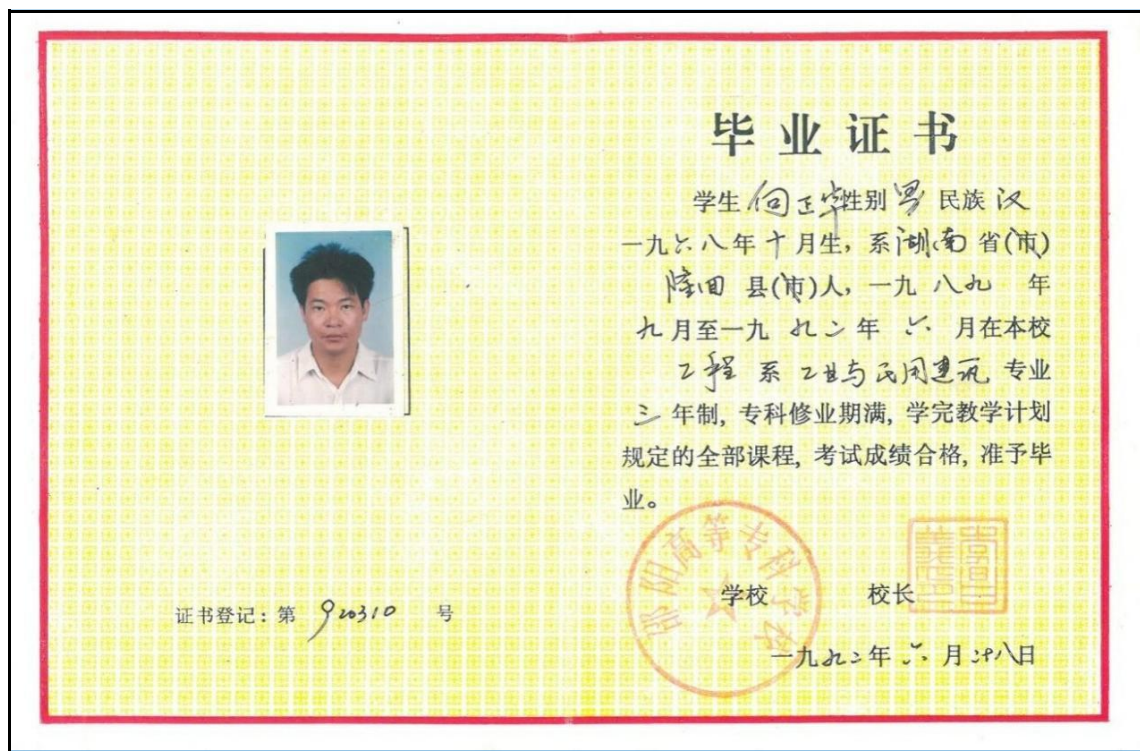 毕业证书
学生 向正华 性别 男 民族 汉
一九六八年十月生，系湖南省(市)
隆回 县(市)人，一九 八九 年
九月至一九 九二 年 六 月在本校
工程 系 工业与民用建筑 专业
三 年制，专科修业期满，学完教学计划
规定的全部课程，考试成绩合格，准予毕
业。
邵阳高等专科学校
学校 校长
一九九二年 六 月二十八日
证书登记：第 920310 号